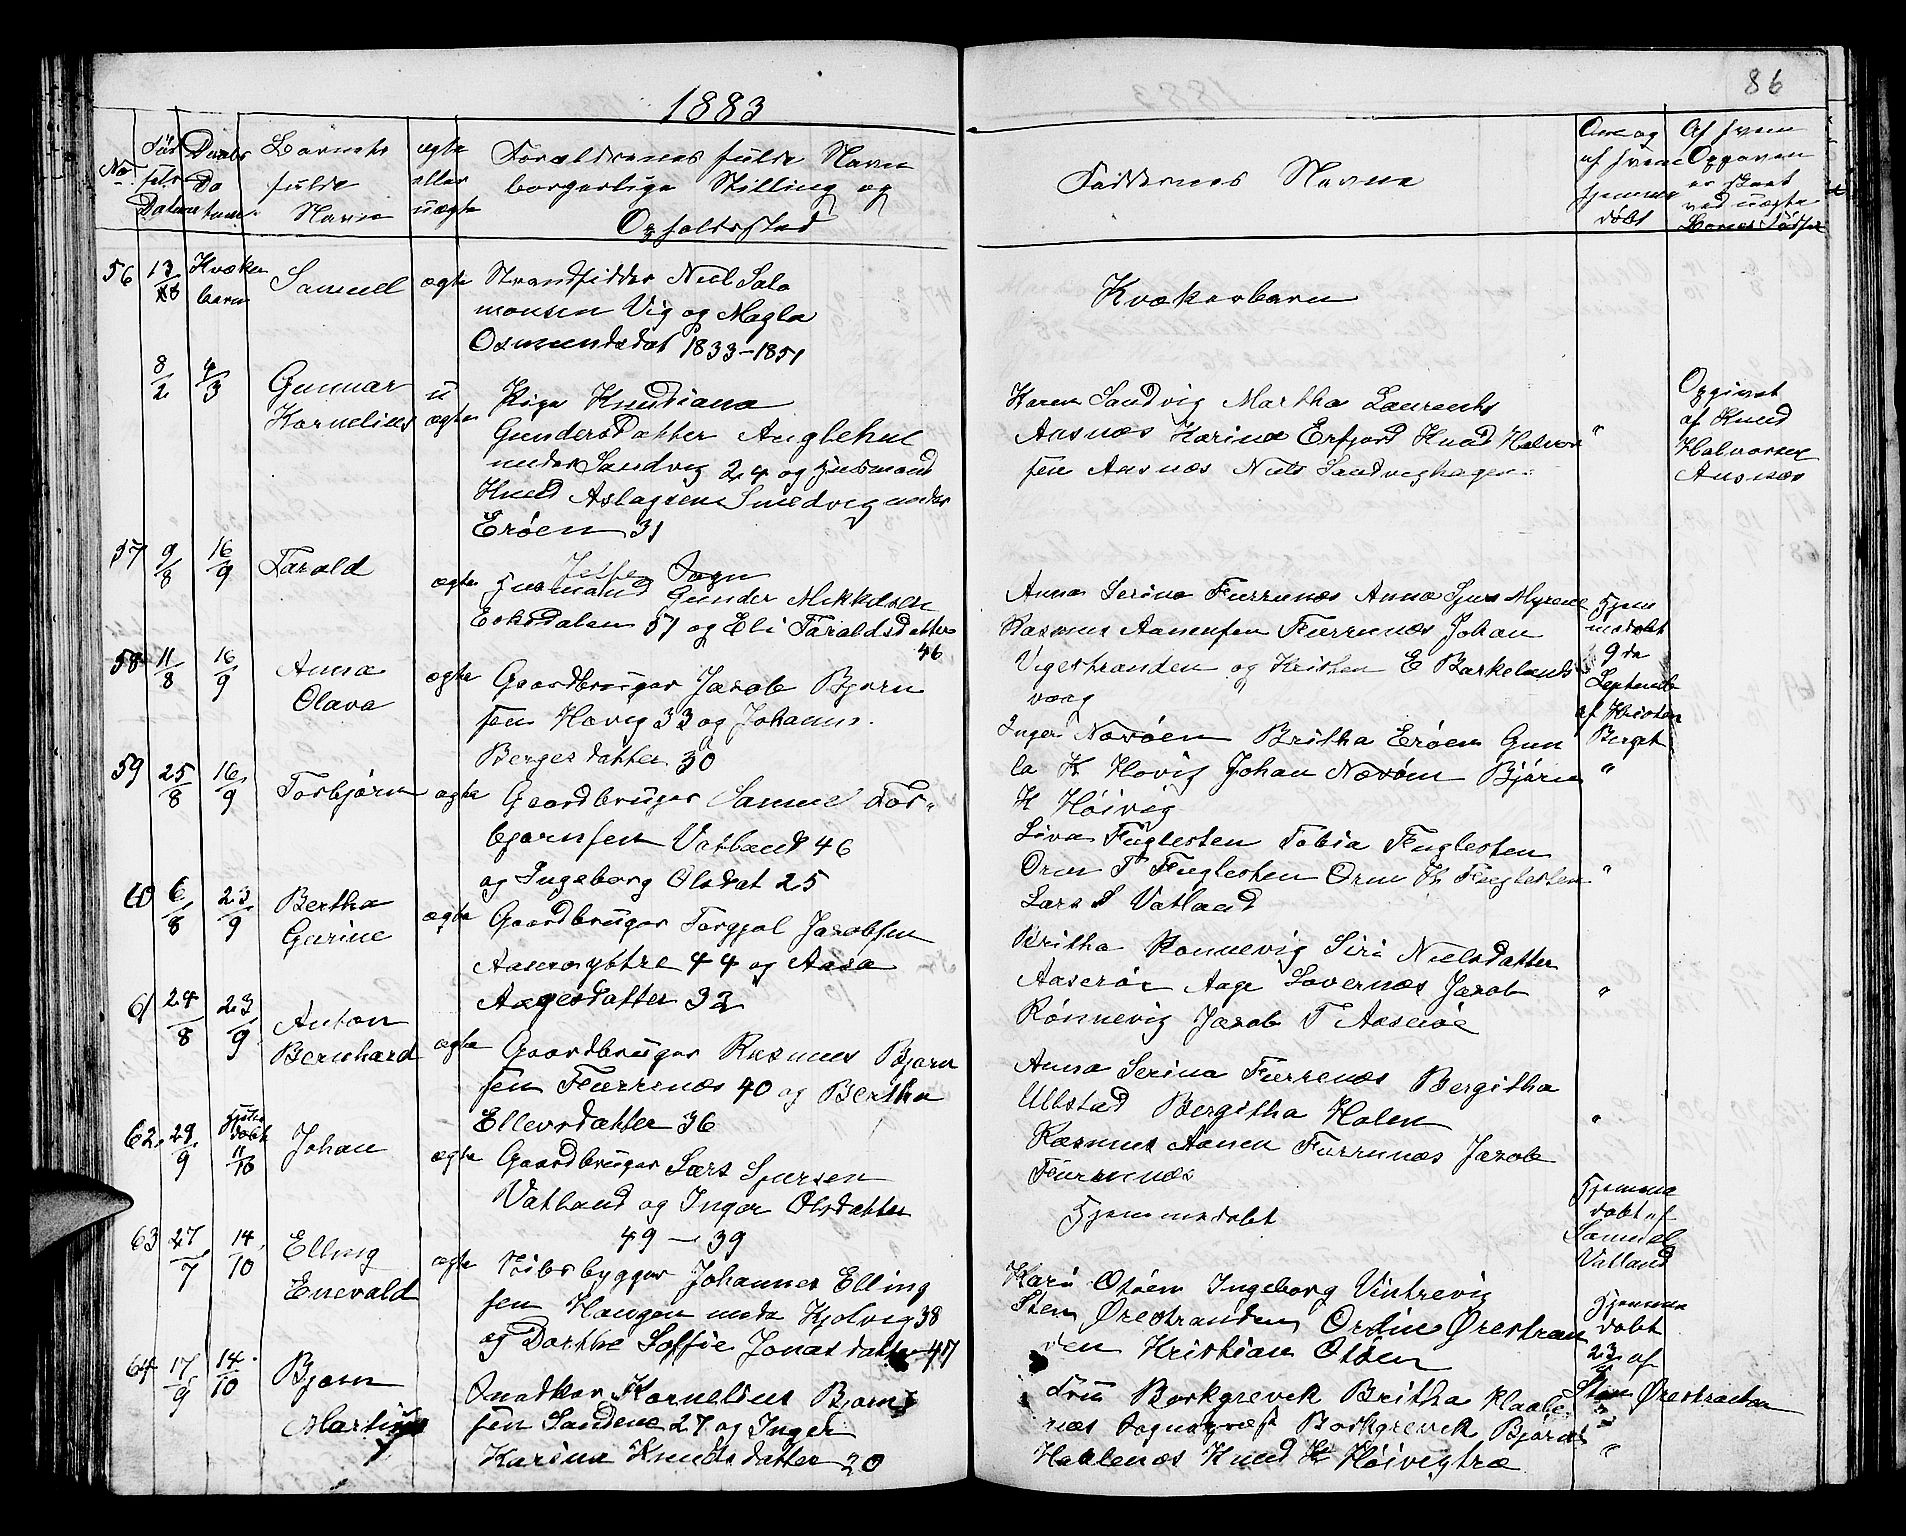 86
1883
No. Fød- sels Datum
Daabs Da tum
Barnets fulde Navn
ægte eller uægte
Forældrenes fulde Navn borgerlige Stilling og Opholdssted
Faddernes Navne
Om og af hvem hjemme døbt
Af hvem Opgaven er skeet ved uægte Børns Fødsel
56 13/8 Kvæker barn Samuel ægte Strandsidder Niel Salo
monsen Vig og Magla
Osmundsdat 1833-1851
Kvækerbarn
8/2 4/3 Gunnar Kornelius u ægte Pige Knudiana
Gundersdatter Anglehul
under Sandvig 24 og Husmand
Knud Aslagsen Smedvig under
Erøen 31
Karen Sandvig Martha Laurents
Aasnæs Karina Erfjord Knud Halvor
sen Aasnæs Niels Sandvighagen "
Opgivet
af Knud
Halvorsen
Aasnæs
57 9/8 16/9 Tarald ægte Jelse Sogn
Husmand Gunder Mikkelsen
Eiksdalen 51 og Eli Taraldsdatter
46
Anna Serina Furrenæs Anna Sjurs Myrene
Rasmus Aanensen Furrenæs Johan
Vigestranden og Kristen E Barkelands
vaag
Hjem
medøbt
9de
Septembr
af Kristen
Berget
58 11/8 16/9 Anna Olava ægte Gaardbruger Jacob Bjørn
sen Hovig 33 og Johanna
Bergesdatter 30
Inger Nærøen Britha Erøen Gun
la K Hovig Johan Nærøen Bjørn "
K Høivig
59 25/8 16/9 Torbjørn ægte Gaardbruger Samuel Tor-
bjørnsen Vatland 46
og Ingeborg Olsdat 25
Siva Fuglesten Tobia Fuglesten
Orm T Fuglesten Orm Th Fuglesten "
Lars S Vatland
60 6/8 23/9 Bertha Gurine ægte Gaardbruger Torgjal Jacobsen
Aamsyttre 44 og Aasa
Aagesdatter 32
Britha Rønnevig Siri Nielsdatter
Aaserøe Aage Lovernæs Jacob "
Rønnevig Jacob T Aaserøe
61 24/8 23/9 Anton Bernhard ægte Gaardbruger Rasmus Bjørn
sen Furrenæs 40 og Bertha
Ellevsdatter 36
Anna Serina Furrenæs Bergitha
Ulstad Bergitha Halen "
Rasmus Aanen Furrenæs Jacob
Furrenæs
62 29/9 Hjemme døbt 11/10 Johan ægte Gaardbruger Lars Sjursen
Vatland og Inger Olsdatter
49 - 39
Hjemmedøbt
Hjemme
døbt af
Samuel
Vatland
63 27/7 14/10 Elling Enevald ægte Skibsbygger Johannes Elling
sen Haugen under Kjølvig 38
og Dorthe Soffie Jonasdatter 47
Kari Otøen Ingeborg Vintrevig
Sten Ørestranden Ordin Ørestran
den Kristian Otøen
Hjemme
døbt
23 af
Sten Ørestranden
64 17/9 14/10 Bjørn Martinus Snedker Kornelius Bjørn
sen Sandene 27 og Inger
Karina Knudsdatter 20
Fru Borkgrevek Britha Klaale
næs Sognepræst Borkgrevek Bjørn "
Haalenæs Knud K Høivigtræ